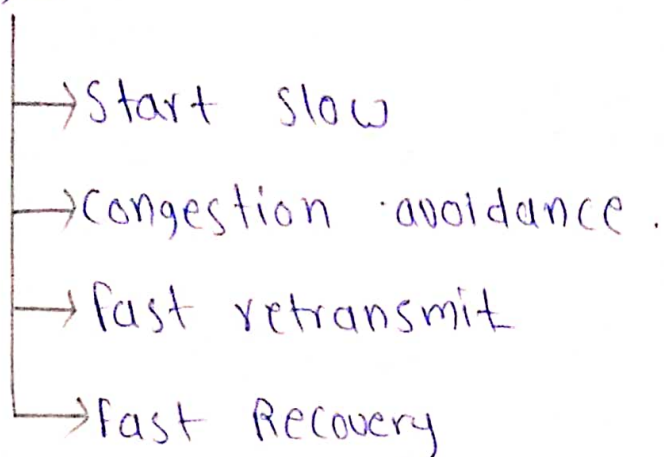 Start slow
Congestion avoidance.
fast retransmit
Fast Recovery